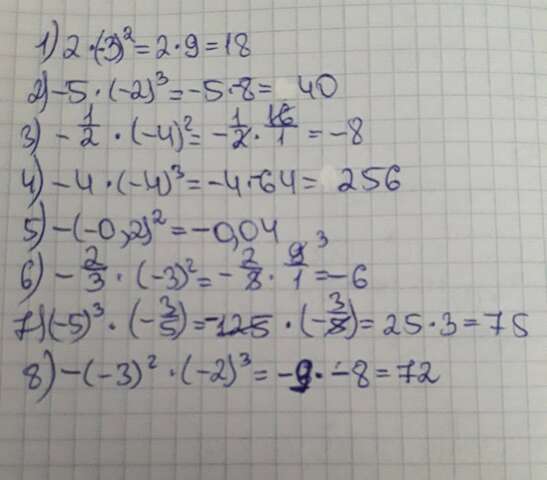 1) 2·(-3)² = 2·9 = 18
2) -5·(-2)³ = -5·-8 = 40
3) -1/2·(-4)² = -1/2·16/1 = -8
4) -4·(-4)³ = -4·-64 = 256
5) -(-0,2)² = -0,04
6) -2/3·(-3)² = -2/3·9/1 ³ = -6
7) (-5)³·(-3/5) = -125·(-3/5) = 25·3 = 75
8) -(-3)²·(-2)³ = -9·-8 = 72